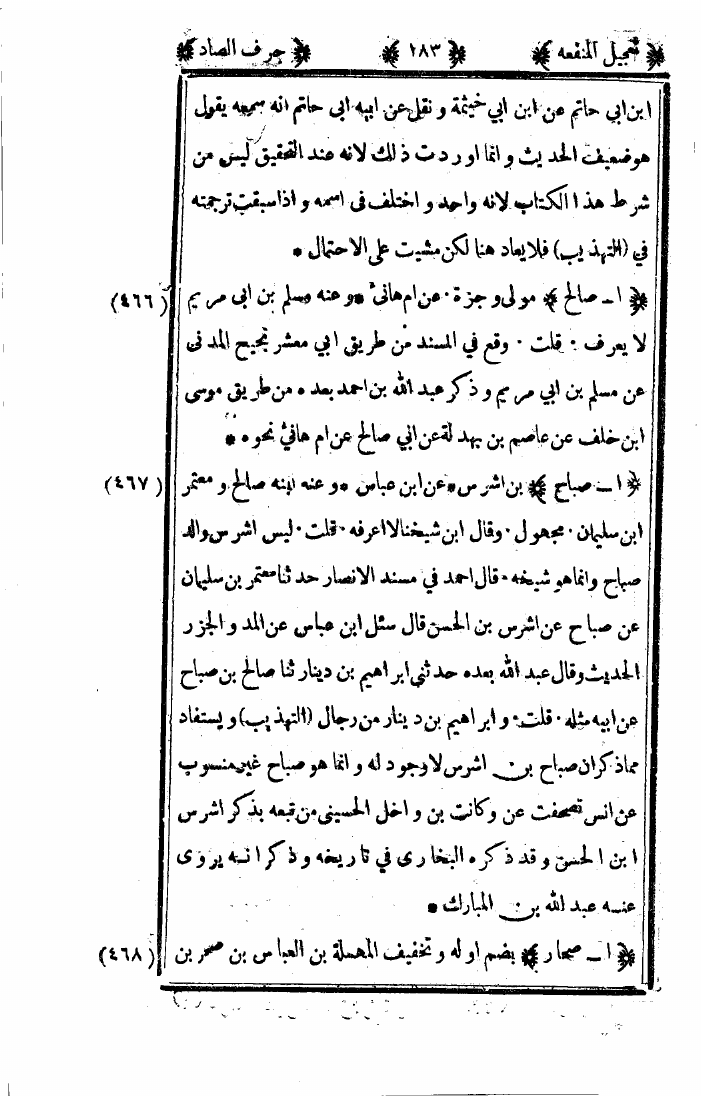 ﴿ تعجيل المنفعه ﴾ ﴿ ١٨٣ ﴾ ﴿ حرف الصاد ﴾
ابن ابي حاتم عن ابن ابي خيثمة و نقل عن ابيه ابى حاتم انه سمعه يقول
هو ضعيف الحديث و انما اوردت ذلك لانه عند التحقيق ليس من
شرط هذا الكتاب لانه واحد و اختلف فى اسمه و اذا سبقت ترجمته
في (التهذيب) فلا يعاد هنا لكن مشيت على الاحتمال *
﴿ ا ـ صالح ﴾ مولى وجزة · عن ام هانئ * و عنه مسلم بن ابى مريم (٤٦٦)
لا يعرف · قلت · وقع في المسند من طريق ابي معشر نجيح المدنى
عن مسلم بن ابي مريم و ذكر عبد الله بن احمد بعده من طريق موسى
ابن خلف عن عاصم بن بهدلة عن ابي صالح عن ام هانئ نحوه *
﴿ ا ـ صباح ﴾ بن اشرس * عن ابن عباس * و عنه ابنه صالح و معتمر (٤٦٧)
ابن سليمان · مجهول · وقال ابن شيخنا لا اعرفه · قلت · ليس اشرس والد
صباح وانما هو شيخه · قال احمد في مسند الانصار حدثنا معتمر بن سليمان
عن صباح عن اشرس بن الحسن قال سئل ابن عباس عن المد و الجزر
الحديث وقال عبد الله بعده حدثنى ابراهيم بن دينار ثنا صالح بن صباح
عن ابيه مثله · قلت · و ابراهيم بن دينار من رجال (التهذيب) و يستفاد
مما ذكر ان صباح بن اشرس لا وجود له و انما هو صباح غير منسوب
عن انس تصحفت عن وكانت بن و اخل الحسينى من تبعه بذكر اشرس
ابن الحسن و قد ذكره البخارى في تاريخه و ذكر انه يروى
عنه عبد الله بن المبارك *
﴿ ا ـ صحار ﴾ بضم اوله و تخفيف المهملة بن العباس بن صخر بن (٤٦٨)